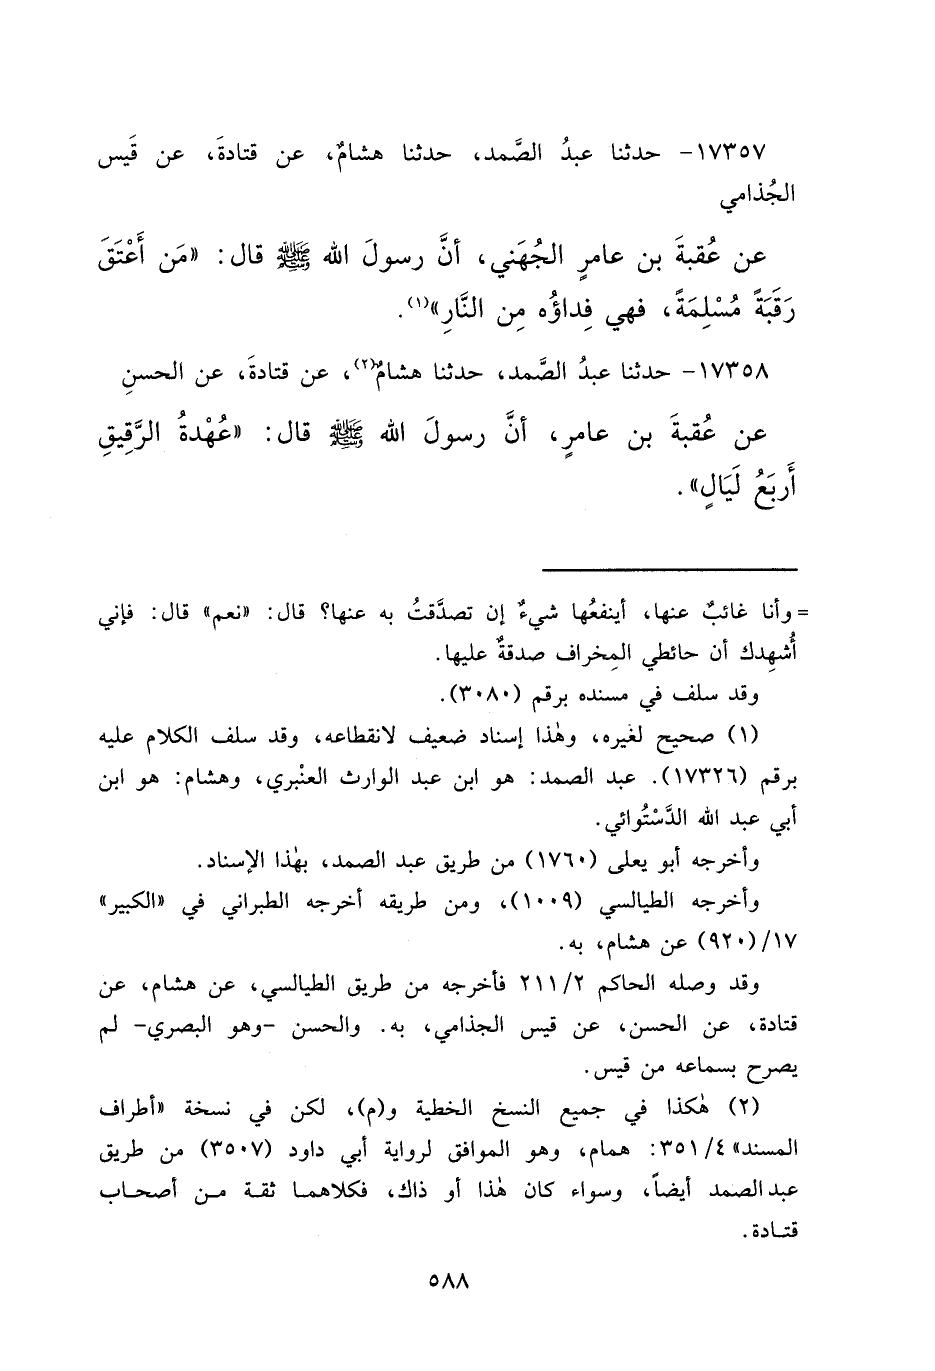 ١٧٣٥٧- حدثنا عبدُ الصَّمد، حدثنا هشامٌ، عن قتادةَ، عن قَيس
الجُذامي
عن عُقبةَ بن عامرٍ الجُهَني، أنَّ رسولَ الله ﷺ قال: «مَن أَعْتَقَ
رَقَبَةً مُسْلِمَةً، فهي فِداؤُه مِن النَّارِ»(١).
١٧٣٥٨- حدثنا عبدُ الصَّمد، حدثنا هشامٌ(٢)، عن قتادةَ، عن الحسنِ
عن عُقبةَ بن عامرٍ، أنَّ رسولَ الله ﷺ قال: «عُهْدةُ الرَّقِيقِ
أَربَعُ لَيَالٍ».
= وأنا غائبٌ عنها، أينفعُها شيءٌ إن تصدَّقتُ به عنها؟ قال: «نعم» قال: فإني
أُشهِدك أن حائطي المِخراف صدقةٌ عليها.
وقد سلف في مسنده برقم (٣٠٨٠).
(١) صحيح لغيره، وهٰذا إسناد ضعيف لانقطاعه، وقد سلف الكلام عليه
برقم (١٧٣٢٦). عبد الصمد: هو ابن عبد الوارث العنْبري، وهشام: هو ابن
أبي عبد الله الدَّسْتُوائي.
وأخرجه أبو يعلى (١٧٦٠) من طريق عبد الصمد، بهٰذا الإسناد.
وأخرجه الطيالسي (١٠٠٩)، ومن طريقه أخرجه الطبراني في «الكبير»
١٧/(٩٢٠) عن هشام، به.
وقد وصله الحاكم ٢١١/٢ فأخرجه من طريق الطيالسي، عن هشام، عن
قتادة، عن الحسن، عن قيس الجذامي، به. والحسن -وهو البصري- لم
يصرح بسماعه من قيس.
(٢) هٰكذا في جميع النسخ الخطية و(م)، لكن في نسخة «أطراف
المسند» ٣٥١/٤: همام، وهو الموافق لرواية أبي داود (٣٥٠٧) من طريق
عبد الصمد أيضاً، وسواء كان هٰذا أو ذاك، فكلاهما ثقة من أصحاب
قتادة.
٥٨٨